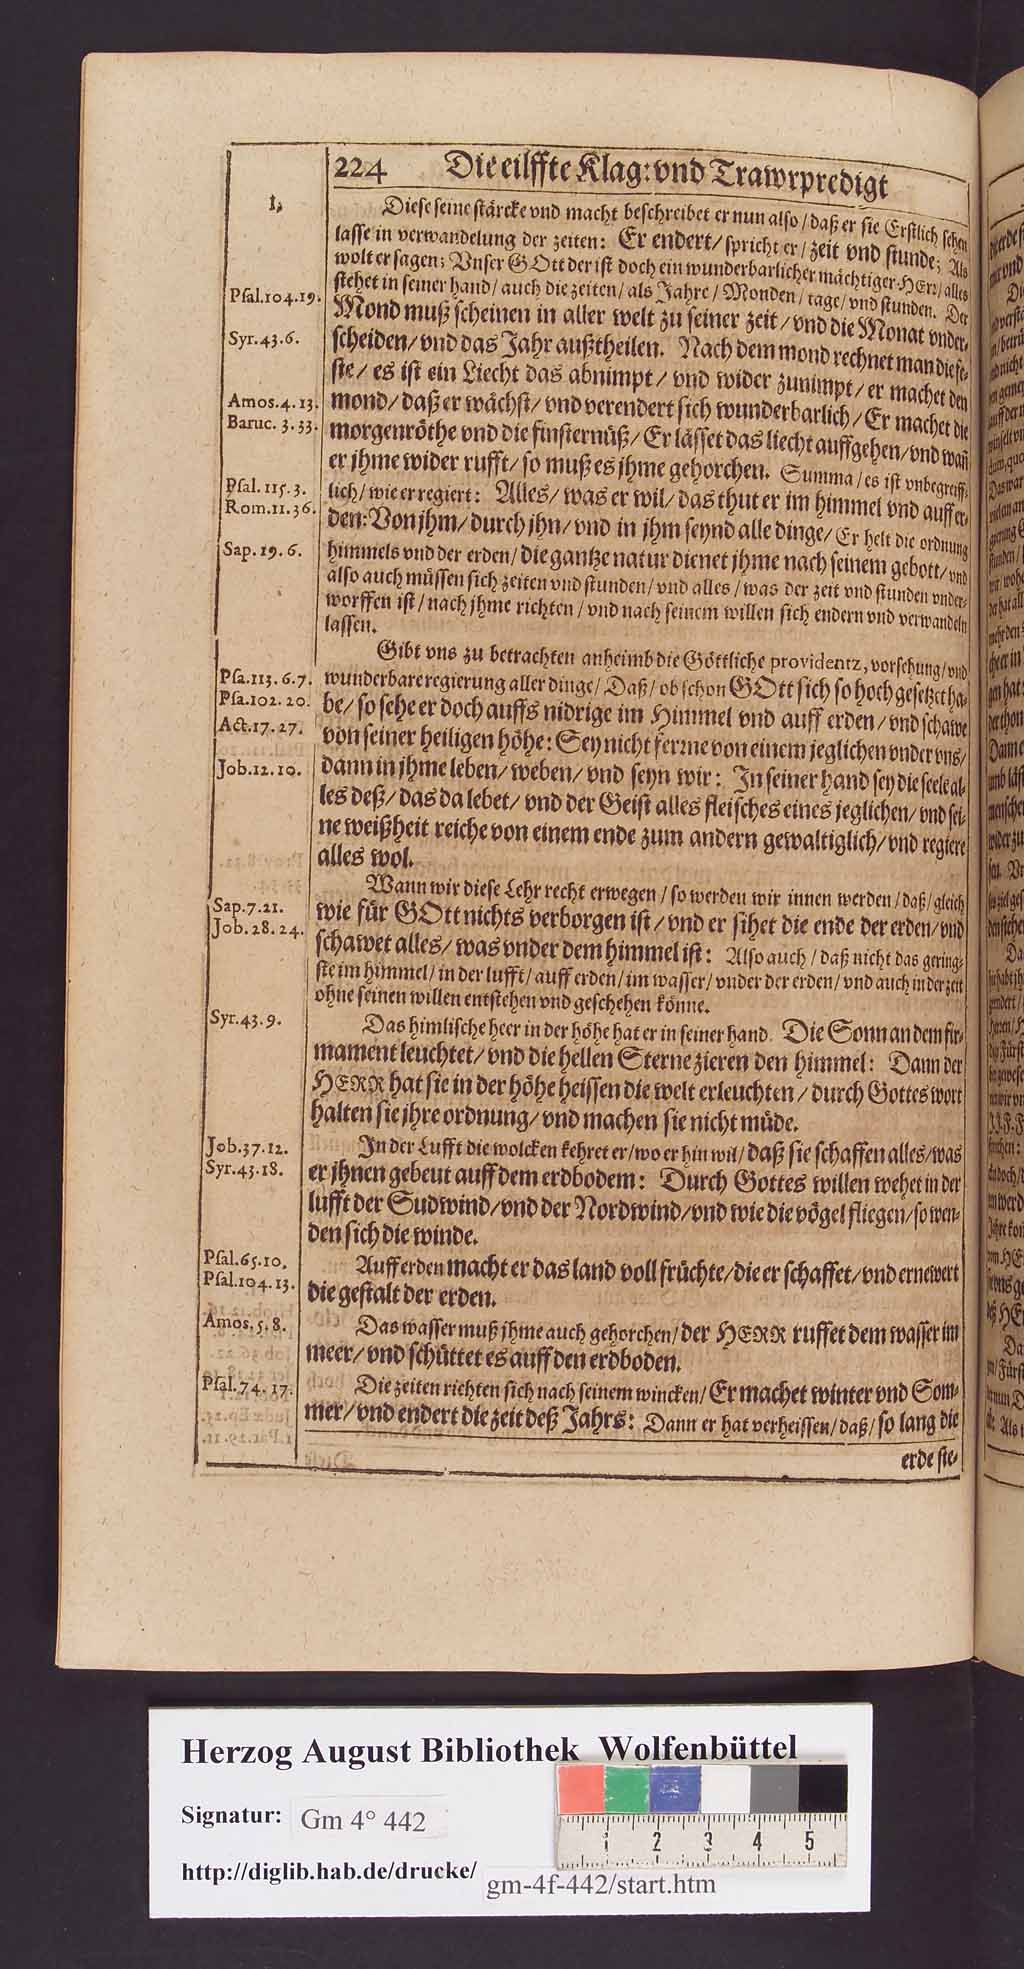 224 Die eilffte Klag: vnd Trawrpredigt
1.
Diese seine stärcke vnd macht beschreibet er nun also / daß er sie Erstlich sehen
lasse in verwandelung der zeiten: Er endert / spricht er / zeit vnd stunde; Als
wolt er sagen; Vnser GOtt der ist doch ein wunderbarlicher mächtiger HErr / alles
stehet in seiner hand / auch die zeiten / als Jahre / Monden / tage / vnd stunden. Der
Psal.104.19.
Mond muß scheinen in aller welt zu seiner zeit / vnd die Monat vnder-
Syr.43.6.
scheiden / vnd das Jahr außtheilen. Nach dem mond rechnet man die fe-
ste / es ist ein Liecht das abnimpt / vnd wider zunimpt / er machet den
Amos.4.13.
mond / daß er wächst / vnd verendert sich wunderbarlich / Er machet die
Baruc. 3.33.
morgenröthe vnd die finsternüß / Er lässet das liecht auffgehen / vnd wañ
er jhme wider rufft / so muß es jhme gehorchen. Summa / es ist vnbegreiff-
Psal.115.3.
lich / wie er regiert: Alles / was er wil / das thut er im himmel vnd auff er-
Rom.11.36.
den: Von jhm / durch jhn / vnd in jhm seynd alle dinge / Er helt die ordnung
Sap.19.6.
himmels vnd der erden / die gantze natur dienet jhme nach seinem gebott / vnd
also auch müssen sich zeiten vnd stunden / vnd alles / was der zeit vnd stunden vnder-
worffen ist / nach jhme richten / vnd nach seinem willen sich endern vnd verwandeln
lassen.
Gibt vns zu betrachten anheimb die Göttliche providentz, vorsehung / vnd
Psa.113.6.7.
wunderbare regierung aller dinge / Daß / ob schon GOtt sich so hoch gesetzet ha-
Psa.102.20.
be / so sehe er doch auffs nidrige im Himmel vnd auff erden / vnd schawe
Act.17.27.
von seiner heiligen höhe: Sey nicht ferrne von einem jeglichen vnder vns /
Job.12.10.
dann in jhme leben / weben / vnd seyn wir: In seiner hand sey die seele al-
les deß / das da lebet / vnd der Geist alles fleisches eines jeglichen / vnd sei-
ne weißheit reiche von einem ende zum andern gewaltiglich / vnd regiere
alles wol.
Wann wir diese Lehr recht erwegen / so werden wir innen werden / daß / gleich
Sap.7.21.
wie für GOtt nichts verborgen ist / vnd er sihet die ende der erden / vnd
Job.28.24.
schawet alles / was vnder dem himmel ist: Also auch / daß nicht das gering-
ste im himmel / in der lufft / auff erden / im wasser / vnder der erden / vnd auch in der zeit
ohne seinen willen entstehen vnd geschehen könne.
Syr.43.9.
Das himlische heer in der höhe hat er in seiner hand. Die Sonn an dem fir-
mament leuchtet / vnd die hellen Sterne zieren den himmel: Dann der
HERR hat sie in der höhe heissen die welt erleuchten / durch Gottes wort
halten sie jhre ordnung / vnd machen sie nicht müde.
Job.37.12.
In der Lufft die wolcken kehret er / wo er hin wil / daß sie schaffen alles / was
Syr.43.18.
er jhnen gebeut auff dem erdbodem: Durch Gottes willen wehet in der
lufft der Sudwind / vnd der Nordwind / vnd wie die vögel fliegen / so wen-
den sich die winde.
Psal.65.10.
Auff erden macht er das land voll früchte / die er schaffet / vnd ernewert
Psal.104.13.
die gestalt der erden.
Amos.5.8.
Das wasser muß jhme auch gehorchen / der HERR ruffet dem wasser im
meer / vnd schüttet es auff den erdboden.
Psal.74.17.
Die zeiten richten sich nach seinem wincken / Er machet winter vnd Som-
mer / vnd endert die zeit deß Jahrs: Dann er hat verheissen / daß / so lang die
erde ste-
Herzog August Bibliothek Wolfenbüttel
Signatur: Gm 4° 442
http://diglib.hab.de/drucke/ gm-4f-442/start.htm
1 2 3 4 5